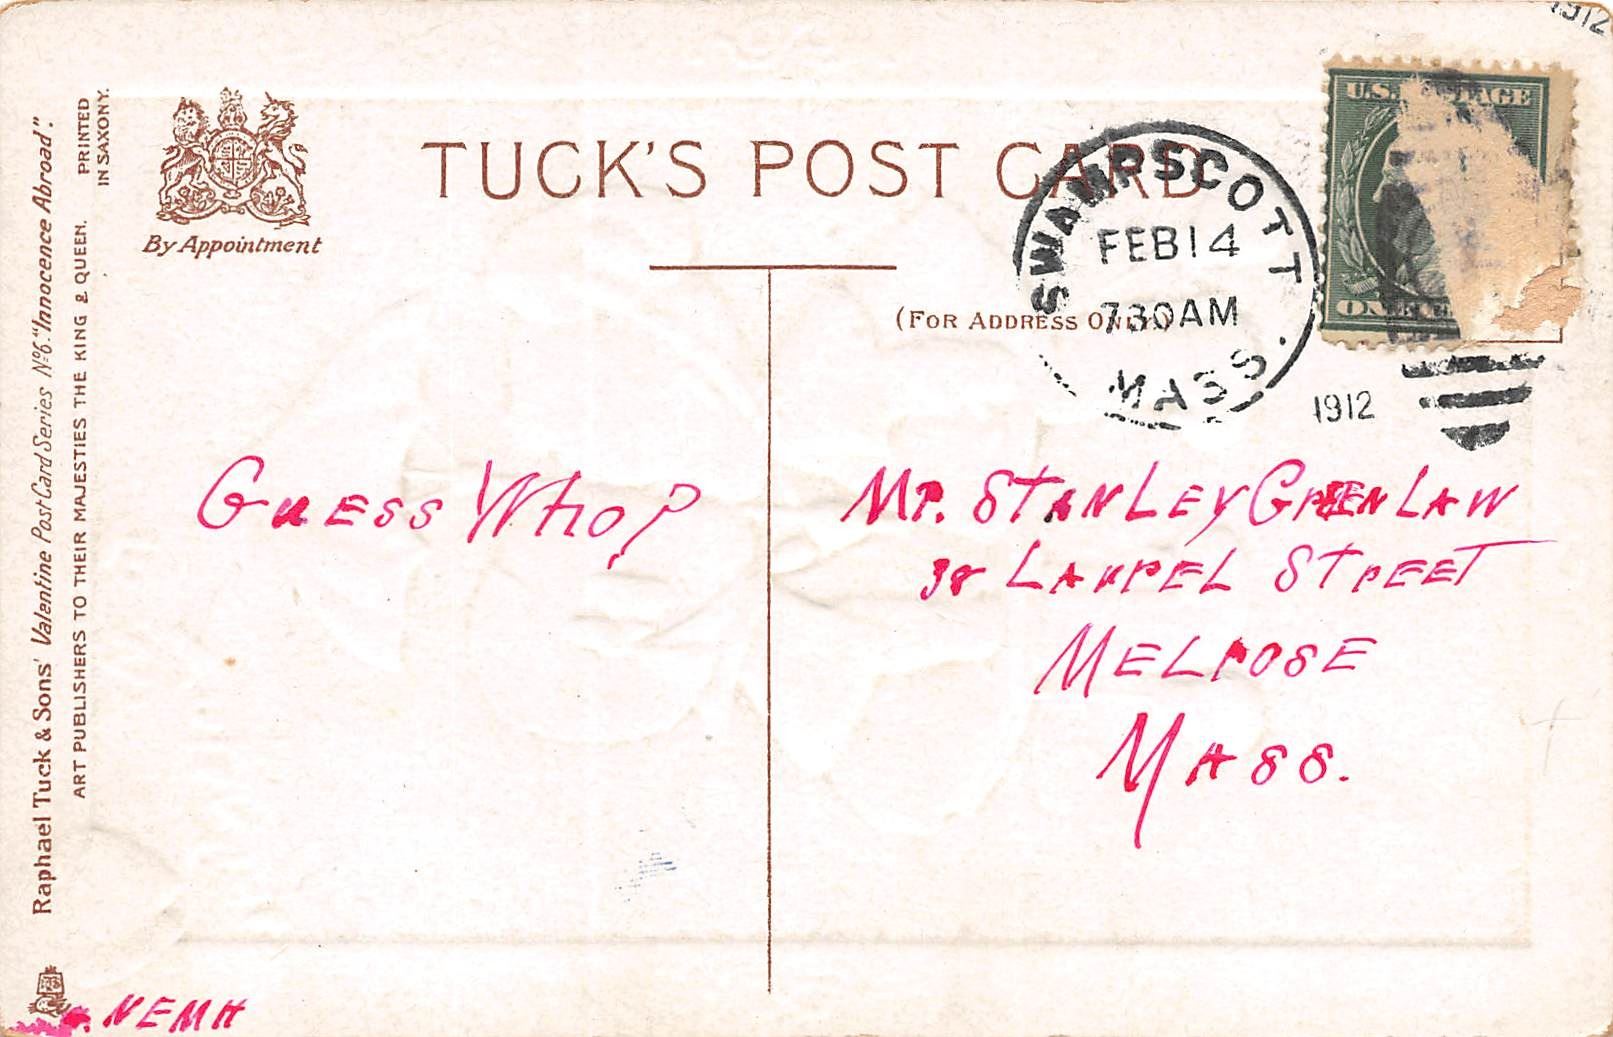 1912
U.S. POSTAGE
TUCK'S POST CARD
By Appointment
SWAMPSCOTT
FEB 14
730AM
MASS.
1912
(FOR ADDRESS ONLY.)
Raphael Tuck & Sons' Valentine Post Card Series No. 6. "Innocence Abroad".
ART PUBLISHERS TO THEIR MAJESTIES THE KING & QUEEN.
PRINTED
IN SAXONY.
GUESS WHO?
MR. STANLEY GREENLAW
38 LAUREL STREET
MELROSE
MASS.
NEMH